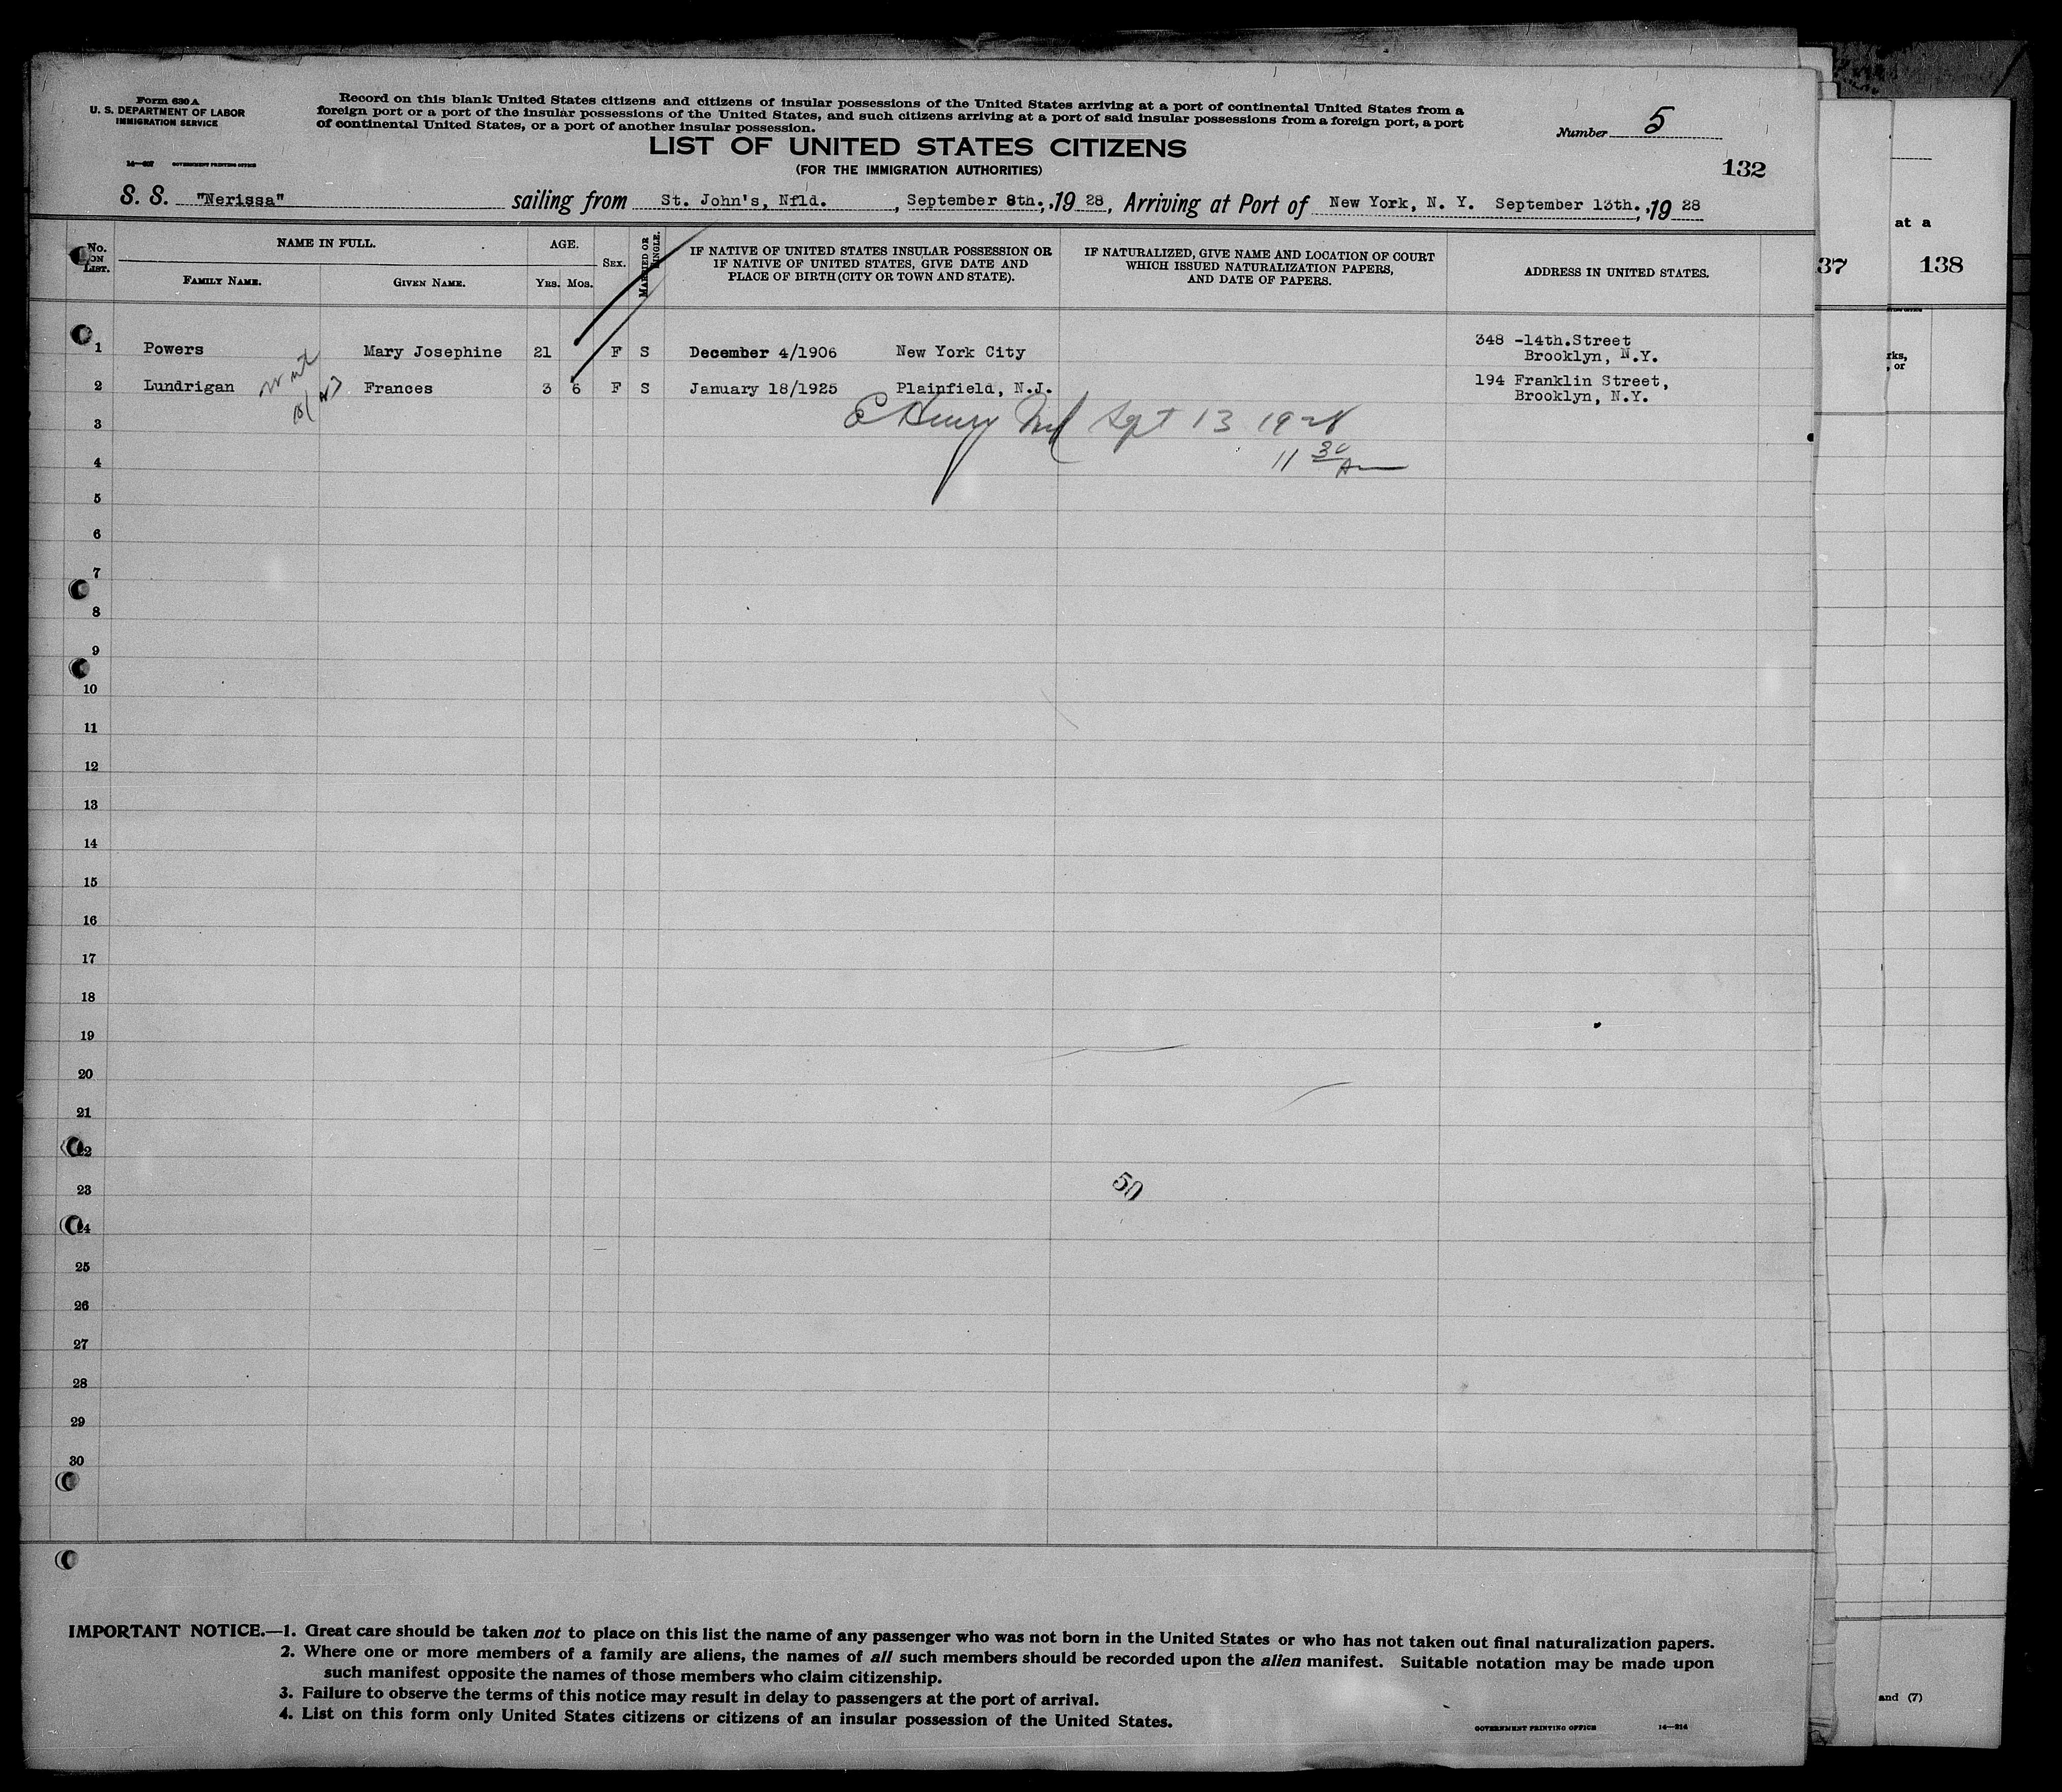 Form 630 A
U. S. DEPARTMENT OF LABOR
IMMIGRATION SERVICE
GOVERNMENT PRINTING OFFICE
Record on this blank United States citizens and citizens of insular possessions of the United States arriving at a port of continental United States from a
foreign port or a port of the insular possessions of the United States, and such citizens arriving at a port of said insular possessions from a foreign port, a port
of continental United States, or a port of another insular possession.
Number 5
LIST OF UNITED STATES CITIZENS
(FOR THE IMMIGRATION AUTHORITIES)
132
S. S. "Nerissa" sailing from St. John's, Nfld. , September 8th., 19 28, Arriving at Port of New York, N. Y. September 13th., 19 28
No. ON LIST.
NAME IN FULL.
FAMILY NAME. GIVEN NAME.
AGE.
YRS. MOS.
SEX.
MARRIED OR SINGLE.
IF NATIVE OF UNITED STATES INSULAR POSSESSION OR
IF NATIVE OF UNITED STATES, GIVE DATE AND
PLACE OF BIRTH (CITY OR TOWN AND STATE).
IF NATURALIZED, GIVE NAME AND LOCATION OF COURT
WHICH ISSUED NATURALIZATION PAPERS,
AND DATE OF PAPERS.
ADDRESS IN UNITED STATES.
1 Powers Mary Josephine 21 F S December 4/1906 New York City 348 -14th.Street
Brooklyn, N.Y.
2 Lundrigan Frances 3 6 F S January 18/1925 Plainfield, N.J. 194 Franklin Street,
Brooklyn, N.Y.
3
E Henry Sept 13 1928
4
11 30 Am
5
6
7
8
9
10
11
12
13
14
15
16
17
18
19
20
21
22
23
50
24
25
26
27
28
29
30
IMPORTANT NOTICE.—1. Great care should be taken not to place on this list the name of any passenger who was not born in the United States or who has not taken out final naturalization papers.
2. Where one or more members of a family are aliens, the names of all such members should be recorded upon the alien manifest. Suitable notation may be made upon
such manifest opposite the names of those members who claim citizenship.
3. Failure to observe the terms of this notice may result in delay to passengers at the port of arrival.
4. List on this form only United States citizens or citizens of an insular possession of the United States.
GOVERNMENT PRINTING OFFICE 14—214
at a
37 138
rks,
, or
and (7)